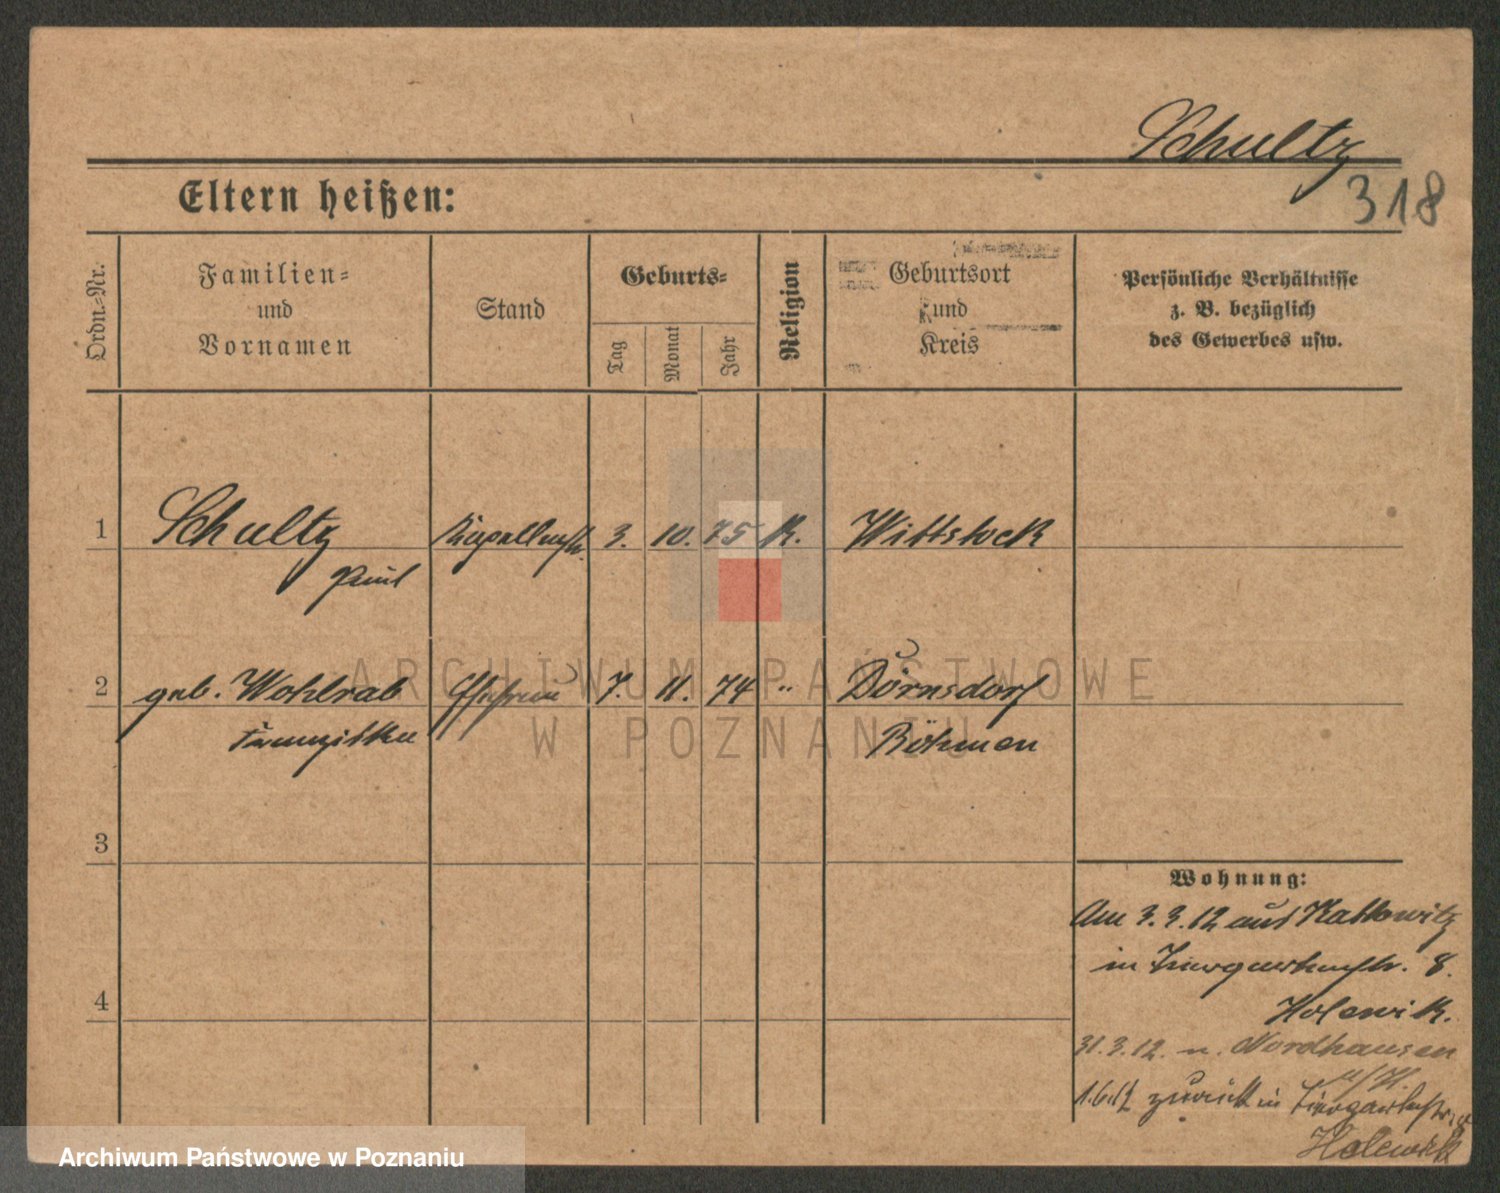 Schultz
318
Eltern heißen:
Ordn.-Nr.
Familien-
und
Vornamen
Stand
Geburts-
Tag
Monat
Jahr
Religion
Geburtsort
und
Kreis
Persönliche Verhältnisse
z. B. bezüglich
des Gewerbes usw.
1 Schultz Kapellmstr. 3. 10. 75 K. Wittstock
Paul
2 geb. Wohlrab Ehefrau 7. 11. 74 " Dörnsdorf
Franziska Böhmen
3
4
Wohnung:
Am 3.3.12 aus Kattowitz
in Tiergartenstr. 8.
Holewik.
31.3.12. n. Nordhausen
1.6.12 zurück in Tiergartenstr.
Holewik
ARCHIWUM PAŃSTWOWE
W POZNANIU
Archiwum Państwowe w Poznaniu